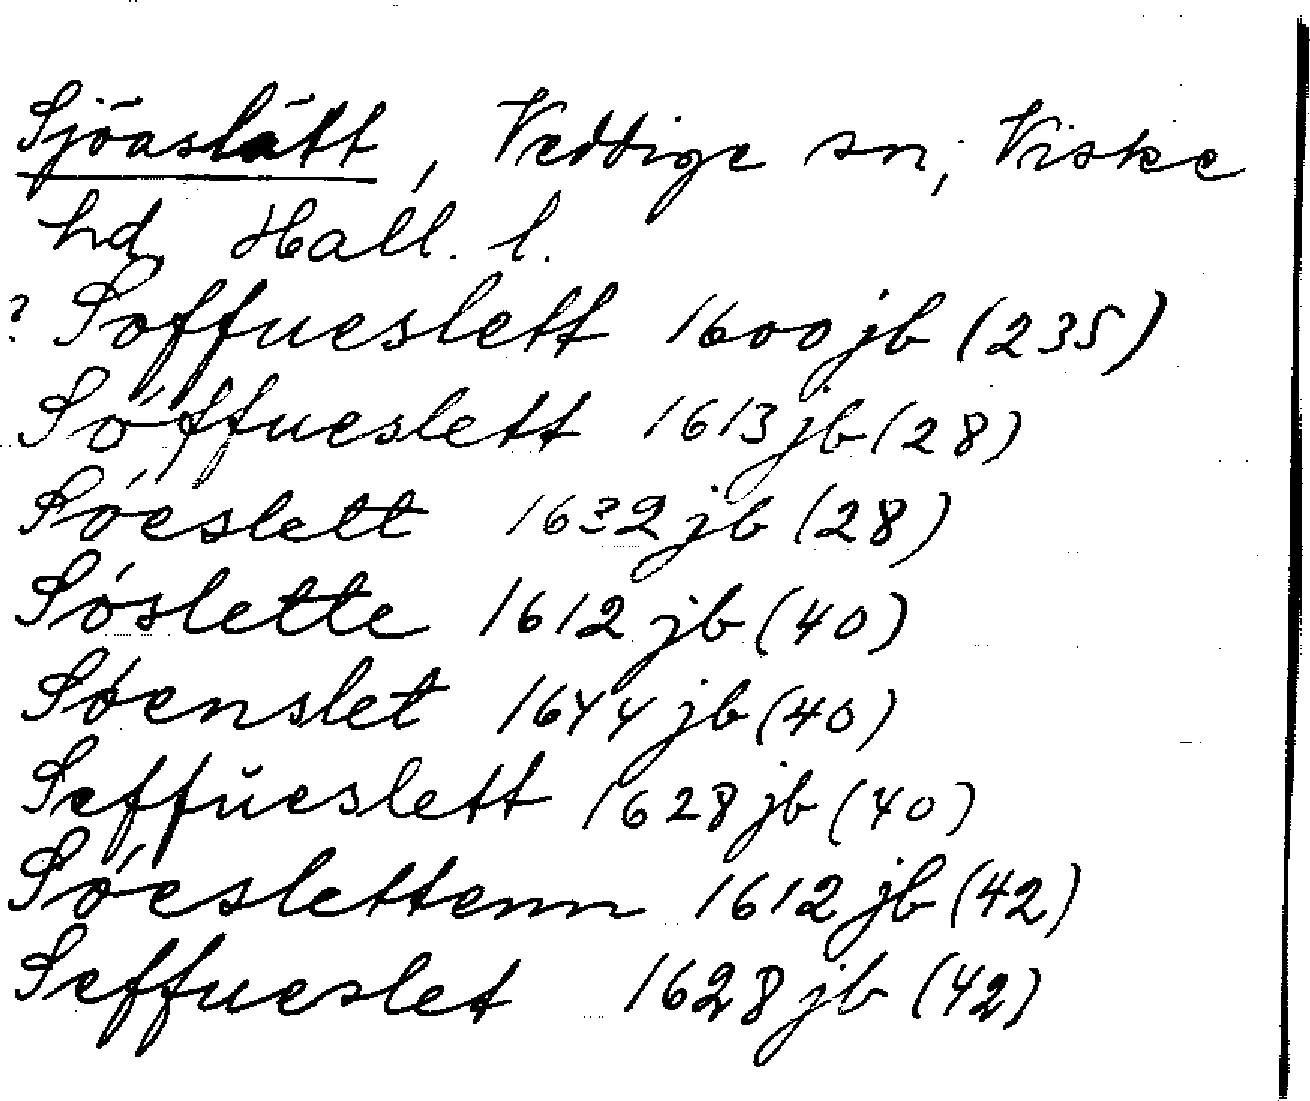 Sjöaslätt, Veddige sn, Viske
hd, Hall. l.
? Soffueslett 1600 jb (235)
Sóffueslett 1613 jb (28)
Sóeslett 1632 jb (28)
Sóslette 1612 jb (40)
Sóenslet 1644 jb (40)
Seffŭeslett 1628 jb (40)
Sóeslettenn 1612 jb (42)
Seffueslet 1628 jb (42)